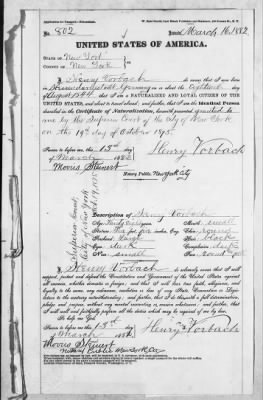 No. 802
March 16, 1882
UNITED STATES OF AMERICA.
STATE OF New York
COUNTY OF New York
I, Henry Vorbach do swear that I was born in
on or about the
of August 1844 that I am a NATURALIZED AND LOYAL CITIZEN OF THE
UNITED STATES, and about to travel abroad; and further, that I am the Identical Person
described in the Certificate of Naturalization, herewith presented, granted to
me by the Supreme Court of the City of New York
on the 19th day of October 1875.
Sworn to before me, this 13th day
of March 1882
Henry Vorbach
Morris Steinert
Notary Public. New York City
Description of Henry Vorbach
Age: Thirty years
Stature: Five feet inches, Eng.
Forehead: large
Eyes: dark
Nose: small
Mouth: small
Chin: round
Hair: black
Complexion: dark
Face: round
I, Henry Vorbach do solemnly swear that I will
support, protect and defend the Constitution and Government of the United States against
all enemies, whether domestic or foreign; and that I will bear true faith, allegiance, and
loyalty to the same, any ordinance, resolution or law of any State, Convention or Legis-
lature to the contrary notwithstanding; and further, that I do this with a full determination,
pledge and purpose, without any mental reservation or evasion whatsoever; and further, that
I will well and faithfully perform all the duties which may be required of me by law.
So help me God.
Sworn to before me, this 13th day
of March 1882
Henry Vorbach
Morris Steinert
Notary Public New York Co